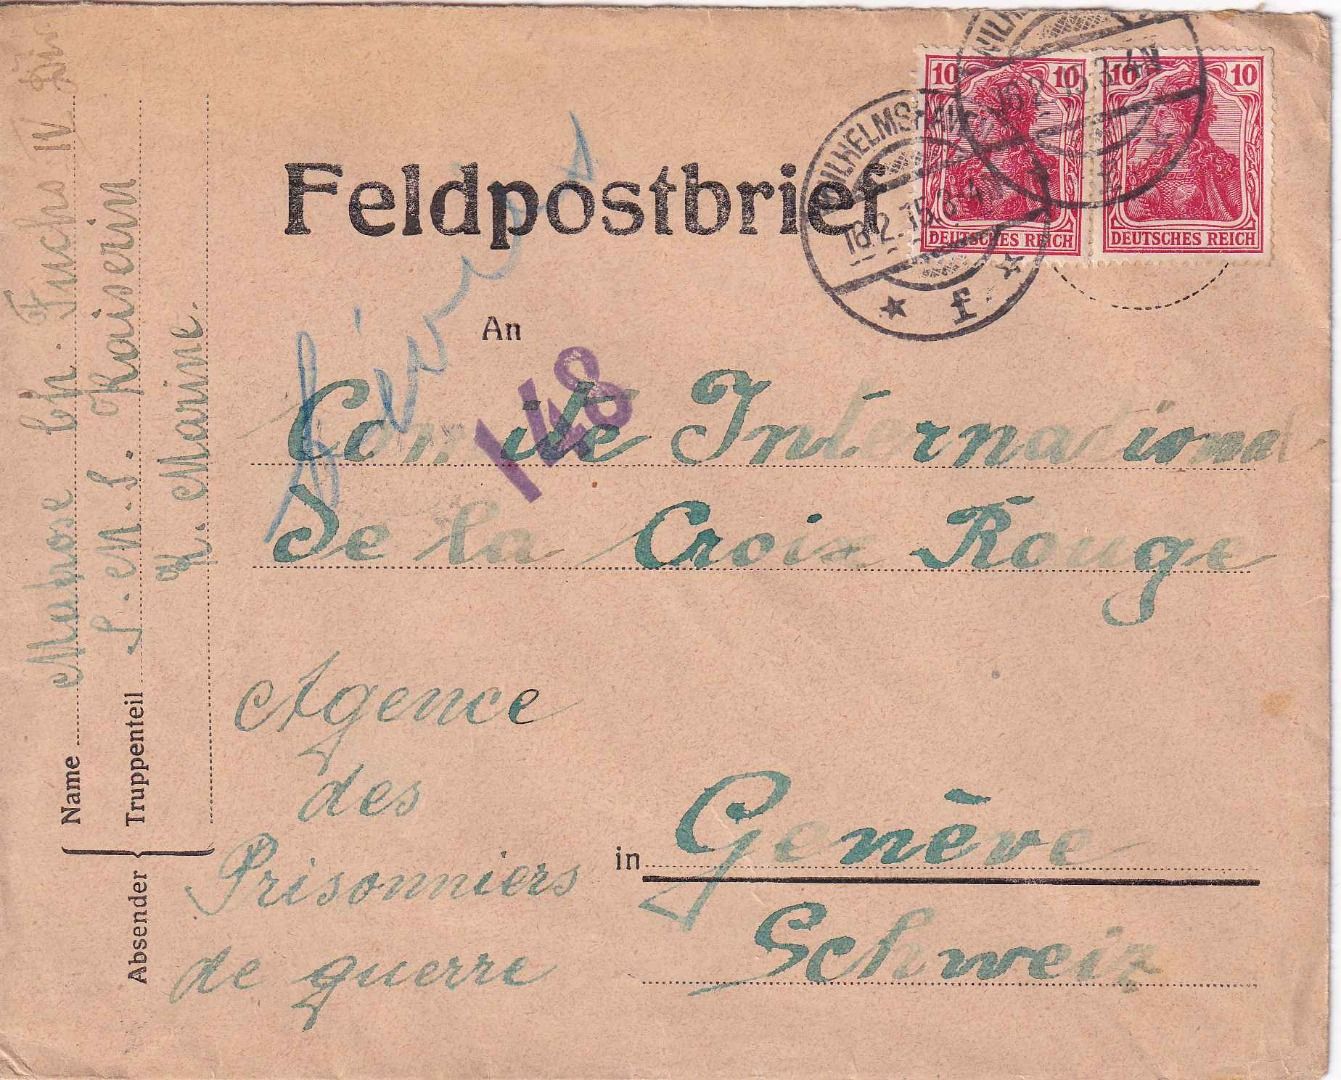 Feldpostbrief
An
Comite International
de la Croix Rouge
Agence
des
Prisonniers
de guerre
in Genève
Schweiz
148
10 10
DEUTSCHES REICH
10 10
DEUTSCHES REICH
WILHELMSHAVEN
* f *
Absender
Name Matrose Fuchs IV. Div
Truppenteil S. M. S. Kaiserin
K. Marine.